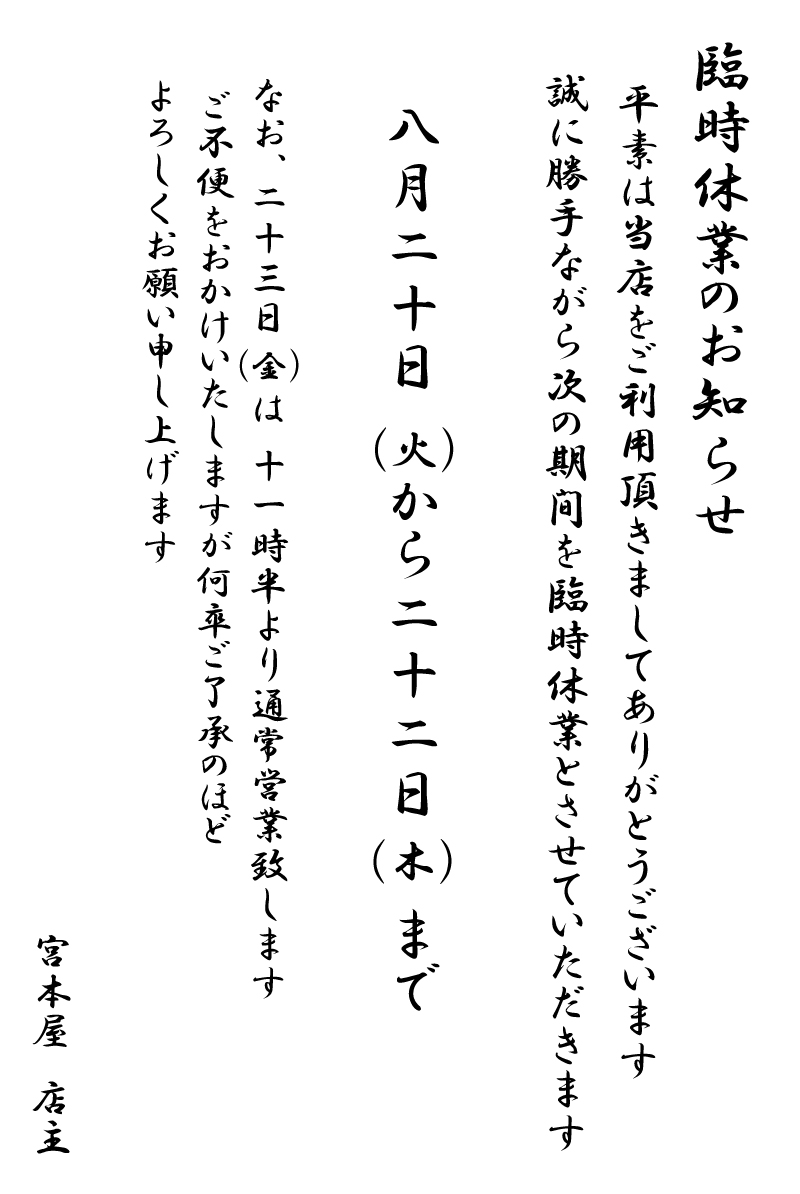 臨時休業のお知らせ
平素は当店をご利用頂きましてありがとうございます
誠に勝手ながら次の期間を臨時休業とさせていただきます
八月二十日(火)から二十二日(木)まで
なお、二十三日(金)は 十一時半より通常営業致します
ご不便をおかけいたしますが何卒ご了承のほど
よろしくお願い申し上げます
宮本屋 店主